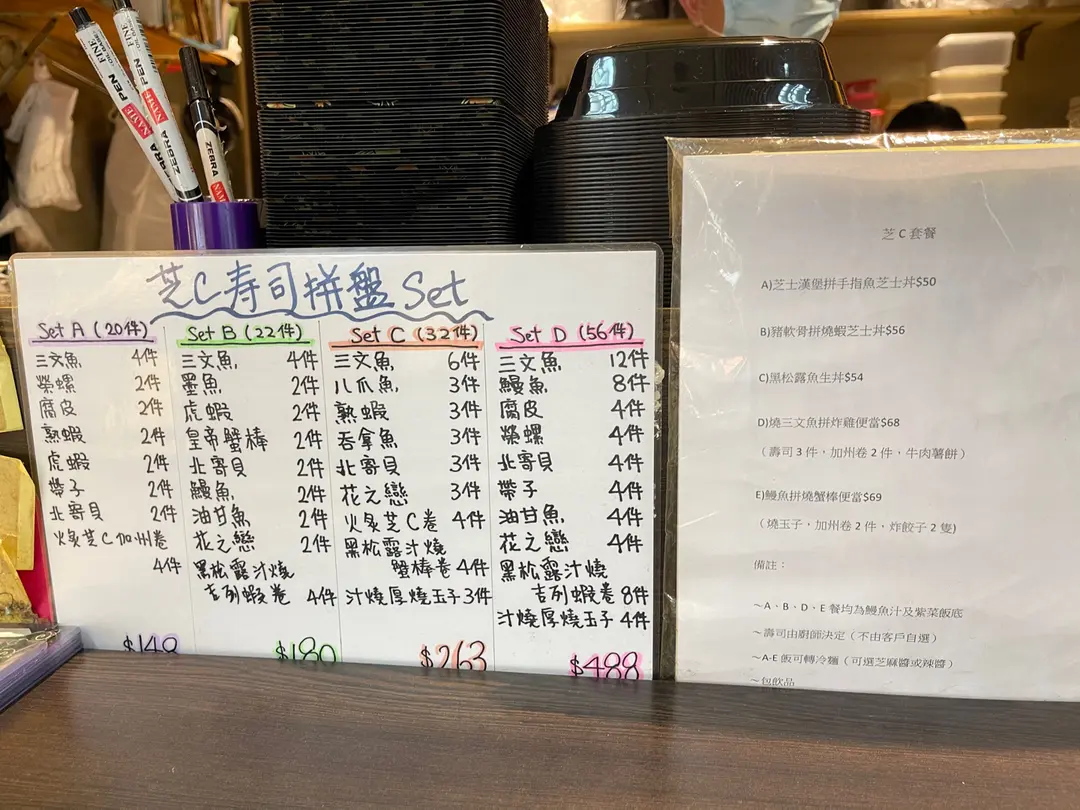 PEN FINE
ZEBRA
NAME
PEN FINE
ZEBRA
NAME
ZEBRA
芝C寿司拼盤 Set
Set A (20件)
三文魚 4件
榮螺 2件
腐皮 2件
熟蝦 2件
虎蝦 2件
帶子 2件
北寄貝 2件
火炙芝C加州卷
4件
$148
Set B (22件)
三文魚 4件
墨魚 2件
虎蝦 2件
皇帝蟹棒 2件
北寄貝 2件
鰻魚 2件
油甘魚 2件
花之戀 2件
黑松露汁燒
吉列蝦卷 4件
$180
Set C (32件)
三文魚 6件
八爪魚 3件
熟蝦 3件
吞拿魚 3件
北寄貝 3件
花之戀 3件
火炙芝C卷 4件
黑松露汁燒
蟹棒卷 4件
汁燒厚燒玉子 3件
$263
Set D (56件)
三文魚 12件
鰻魚 8件
腐皮 4件
榮螺 4件
北寄貝 4件
帶子 4件
油甘魚 4件
花之戀 4件
黑松露汁燒
吉列蝦卷 8件
汁燒厚燒玉子 4件
$488
芝 C 套餐
A)芝士漢堡拼手指魚芝士丼$50
B)豬軟骨拼燒蝦芝士丼$56
C)黑松露魚生丼$54
D)燒三文魚拼炸雞便當$68
（壽司 3 件，加州卷 2 件，牛肉薯餅）
E)鰻魚拼燒蟹棒便當$69
（燒玉子，加州卷 2 件，炸餃子 2 隻)
備註：
～A、B、D、E 餐均為鰻魚汁及紫菜飯底
～壽司由廚師決定（不由客戶自選）
～A-E 飯可轉冷麵（可選芝麻醬或辣醬）
～包飲品